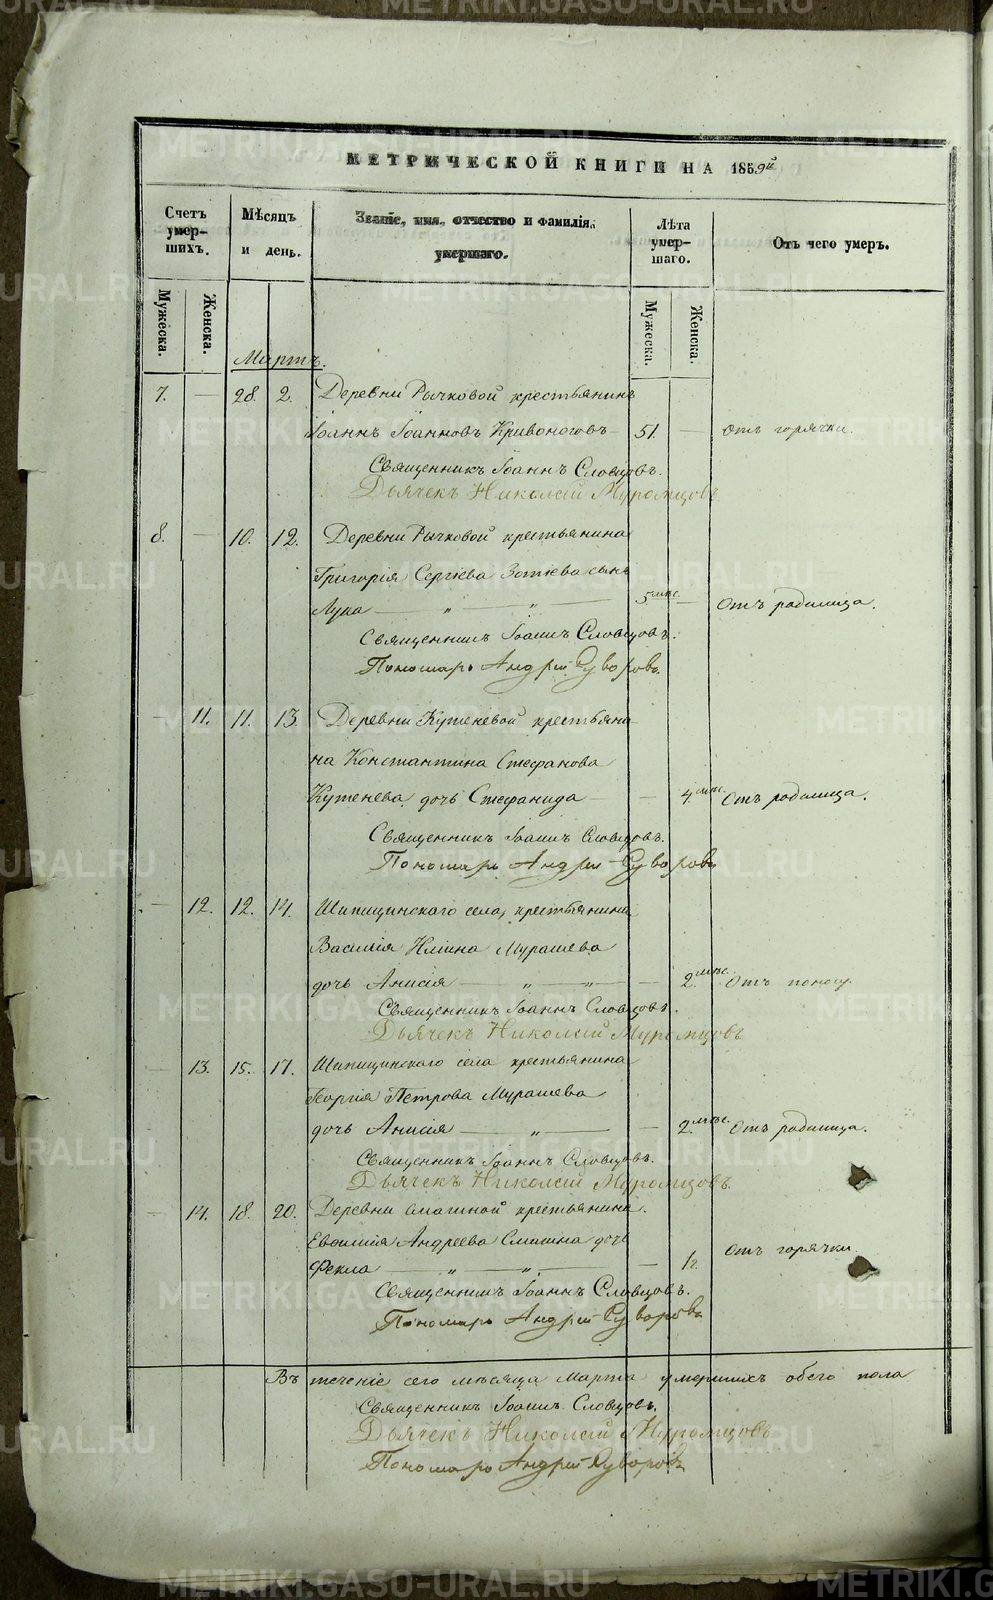 МЕТРИЧЕСКОЙ КНИГИ НА 1859й
Счетъ умер-шихъ.
Мѣсяцъ и день.
Званіе, имя, отчество и фамилія умершаго.
Лѣта умер-шаго.
Отъ чего умеръ.
Мужеска. Женска. Мужеска. Женска.
Мартъ.
7. — 28. 2. Деревни Рычковой крестьянинъ
Іоаннъ Іоанновъ Кривоноговъ — 51. — отъ горячки.
Священникъ Іоаннъ Словцовъ.
Дьячекъ Николай Муромцовъ
8. — 10. 12. Деревни Рычковой крестьянина
Григорія Сергіева Зотіева сынъ
Лука — „ — „ — 5 мѣс. — Отъ родимца.
Священникъ Іоаннъ Словцовъ.
Пономарь Андрей Суворовъ
— 11. 11. 13. Деревни Кутеневой крестьяни
на Константина Стефанова
Кутенева дочь Стефанида — — 4 мѣс. Отъ родимца.
Священникъ Іоаннъ Словцовъ.
Пономарь Андрей Суворовъ
— 12. 12. 14. Шипицинскаго села, крестьянина
Василія Ильина Мурашева
дочь Анисія — „ — „ — — 2. мѣс. Отъ поносу.
Священникъ Іоаннъ Словцовъ.
Дьячекъ Николай Муромцовъ
— 13. 15. 17. Шипицинскаго села крестьянина
Георгія Петрова Мурашева
дочь Анисія — „ — — 2. мѣс. Отъ родимца.
Священникъ Іоаннъ Словцовъ.
Дьячекъ Николай Муромцовъ
— 14. 18. 20. Деревни крестьянина.
Евфимія Андреева дочь
Фекла — „ — „ — — 1 г. Отъ горячки.
Священникъ Іоаннъ Словцовъ.
Пономарь Андрей Суворовъ
Въ теченіе сего мѣсяца Марта умершихъ обего пола
Священникъ Іоаннъ Словцовъ.
Дьячекъ Николай Муромцовъ
Пономарь Андрей Суворовъ
METRIKI.GASO-URAL.RU